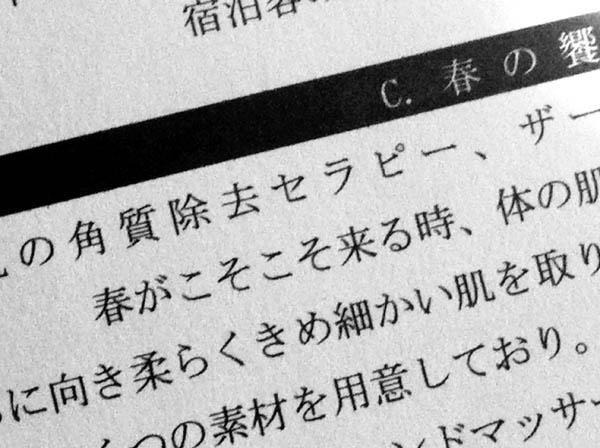 宿泊客
C. 春の饗
の角質除去セラピー、ザー
春がこそこそ来る時、体の肌
に向き柔らくきめ細かい肌を取り
つの素材を用意しており。
ンドマッサー